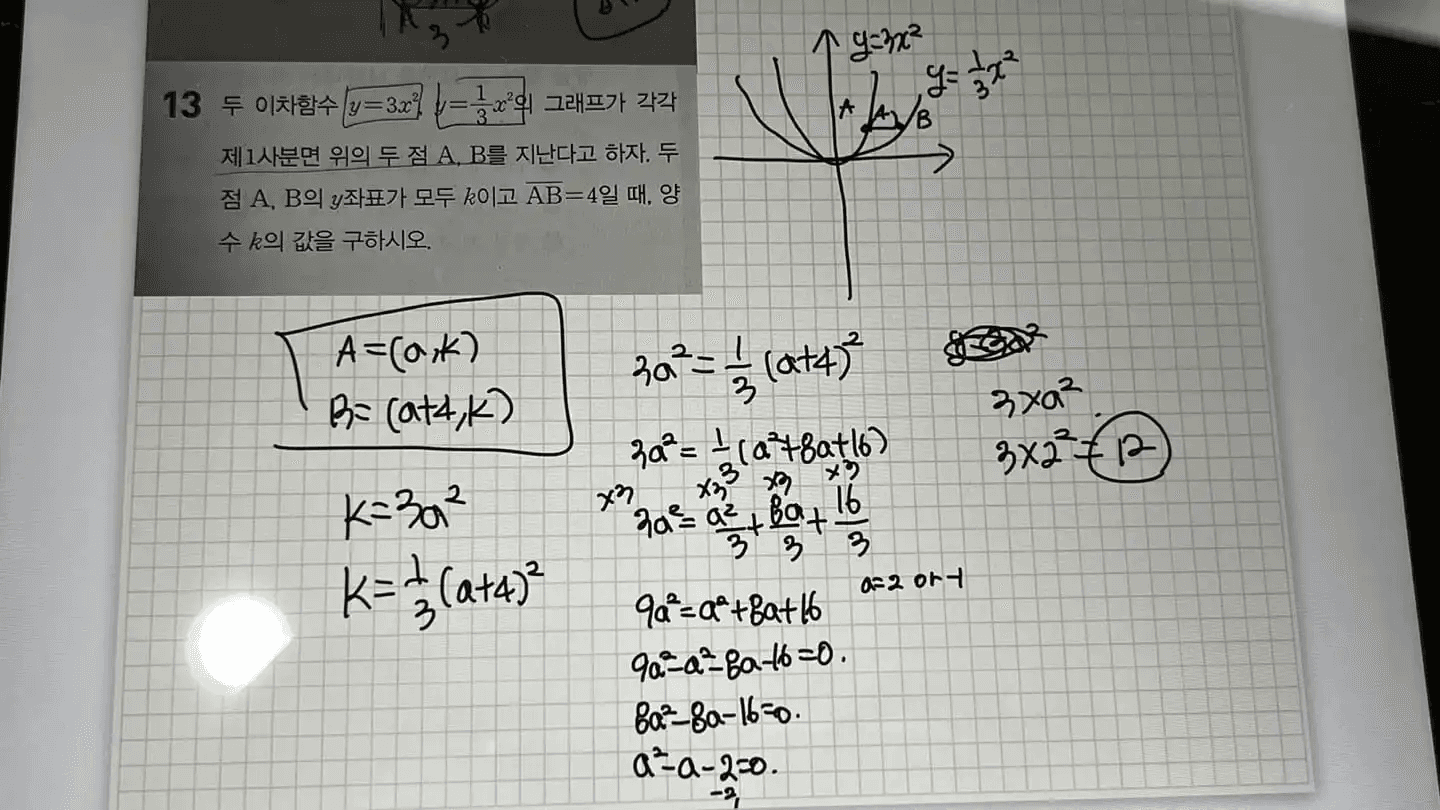 3
13 두 이차함수 y=3x², y=1/3x²의 그래프가 각각
제1사분면 위의 두 점 A, B를 지난다고 하자. 두
점 A, B의 y좌표가 모두 k이고 AB=4일 때, 양
수 k의 값을 구하시오.
y=3x²
y=1/3x²
A
B
A=(a,k)
B=(a+4,k)
K=3a²
K=1/3(a+4)²
3a²=1/3(a+4)²
3a²=1/3(a²+8a+16)
×3 ×3 ×3 ×3
3a²=a²/3+8a/3+16/3
a=2 or -1
9a²=a²+8a+16
9a²-a²-8a-16=0.
8a²-8a-16=0.
a²-a-2=0.
-2
3×a²
3×2²=12